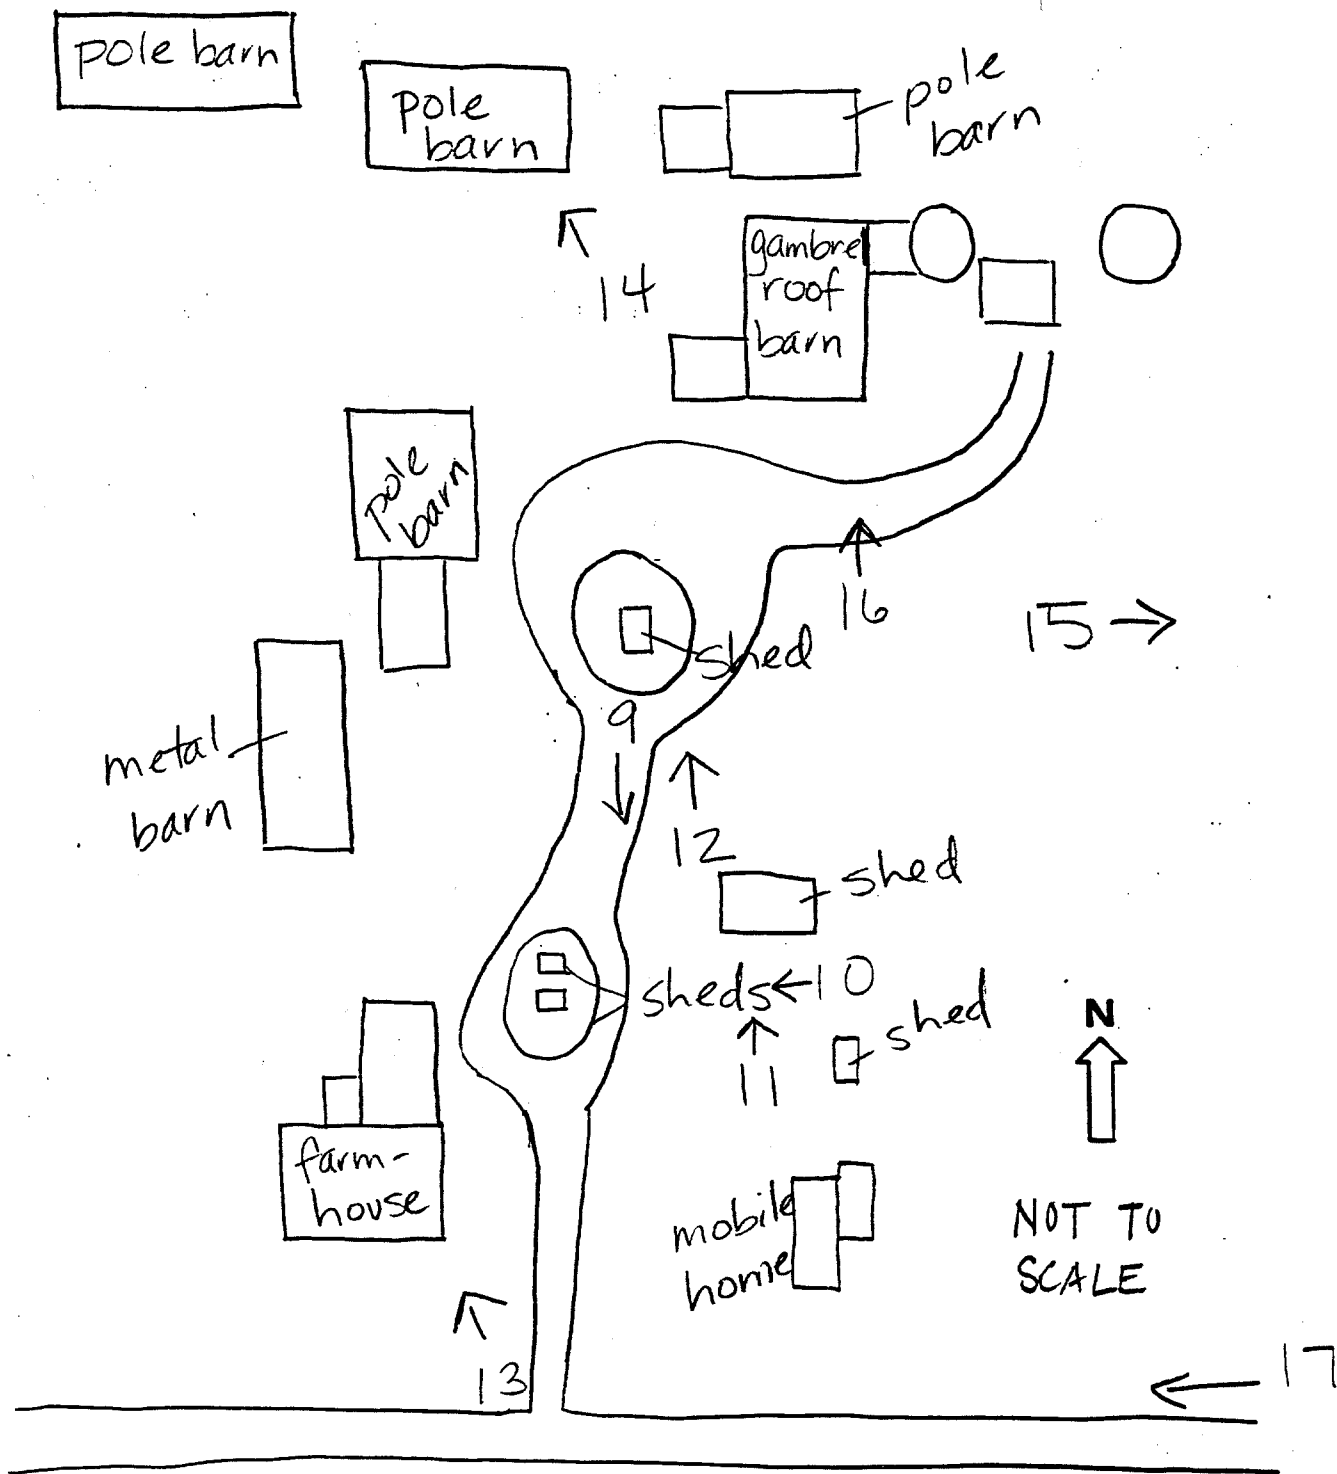 pole barn
pole
barn
pole
barn
gambrel
roof
barn
14
pole
barn
16
15
shed
9
metal
barn
12
shed
sheds
10
shed
11
N
farm-
house
mobile
home
NOT TO
SCALE
13
17